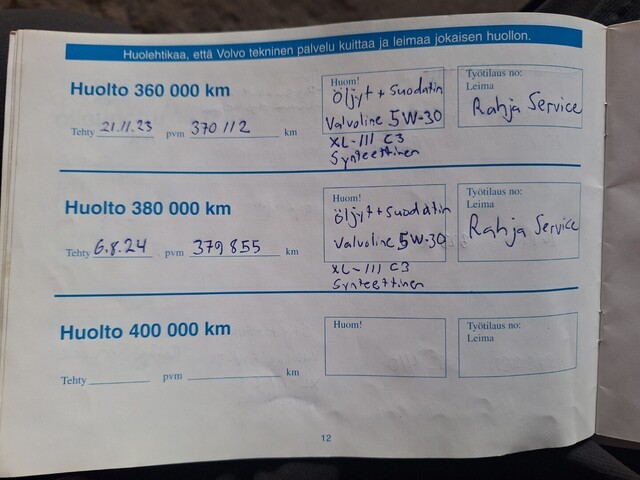 Huolehtikaa, että Volvo tekninen palvelu kuittaa ja leimaa jokaisen huollon.
Huolto 360 000 km
Tehty 21.11.23 pvm 370 112 km
Huom!
Öljyt + Suodatin
Valvoline 5W-30
XL-III C3
Synteettinen
Työtilaus no:
Leima
Rahja Service
Huolto 380 000 km
Tehty 6.8.24 pvm 379 855 km
Huom!
Öljyt + Suodatin
Valvoline 5W-30
XL-III C3
Synteettinen
Työtilaus no:
Leima
Rahja Service
Huolto 400 000 km
Tehty pvm km
Huom!
Työtilaus no:
Leima
12